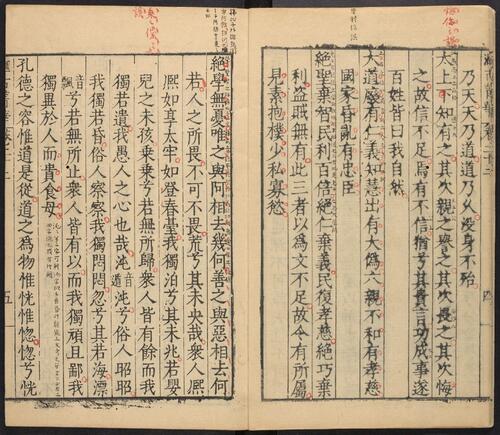 乃天天乃道道乃久没身不殆
太上不知有之其次親之譽之其次畏之其次侮
之故信不足焉有不信猶兮其貴言功成事遂
百姓皆曰我自然
大道廢有仁義知慧出有大偽六親不和有孝慈
國家昏亂有忠臣
絕聖棄智民利百倍絕仁棄義民復孝慈絕巧棄
利盜賊無有此三者以為文不足故令有所屬
見素抱樸少私寡慾
絕學無憂唯之與阿相去幾何善之與惡相去何
若人之所畏不可不畏荒兮其未央哉衆人熙
熙如享太牢如登春臺我獨泊兮其未兆若嬰
兒之未孩乗乗兮若無所歸衆人皆有餘而我
獨若遺我愚人之心也哉沌沌兮俗人昭昭
我獨若昏俗人察察我獨悶悶忽兮其若海漂
兮若無所止衆人皆有以而我獨頑且鄙我
獨異於人而貴食母
孔德之容惟道是從道之為物惟恍惟惚惚兮恍
五